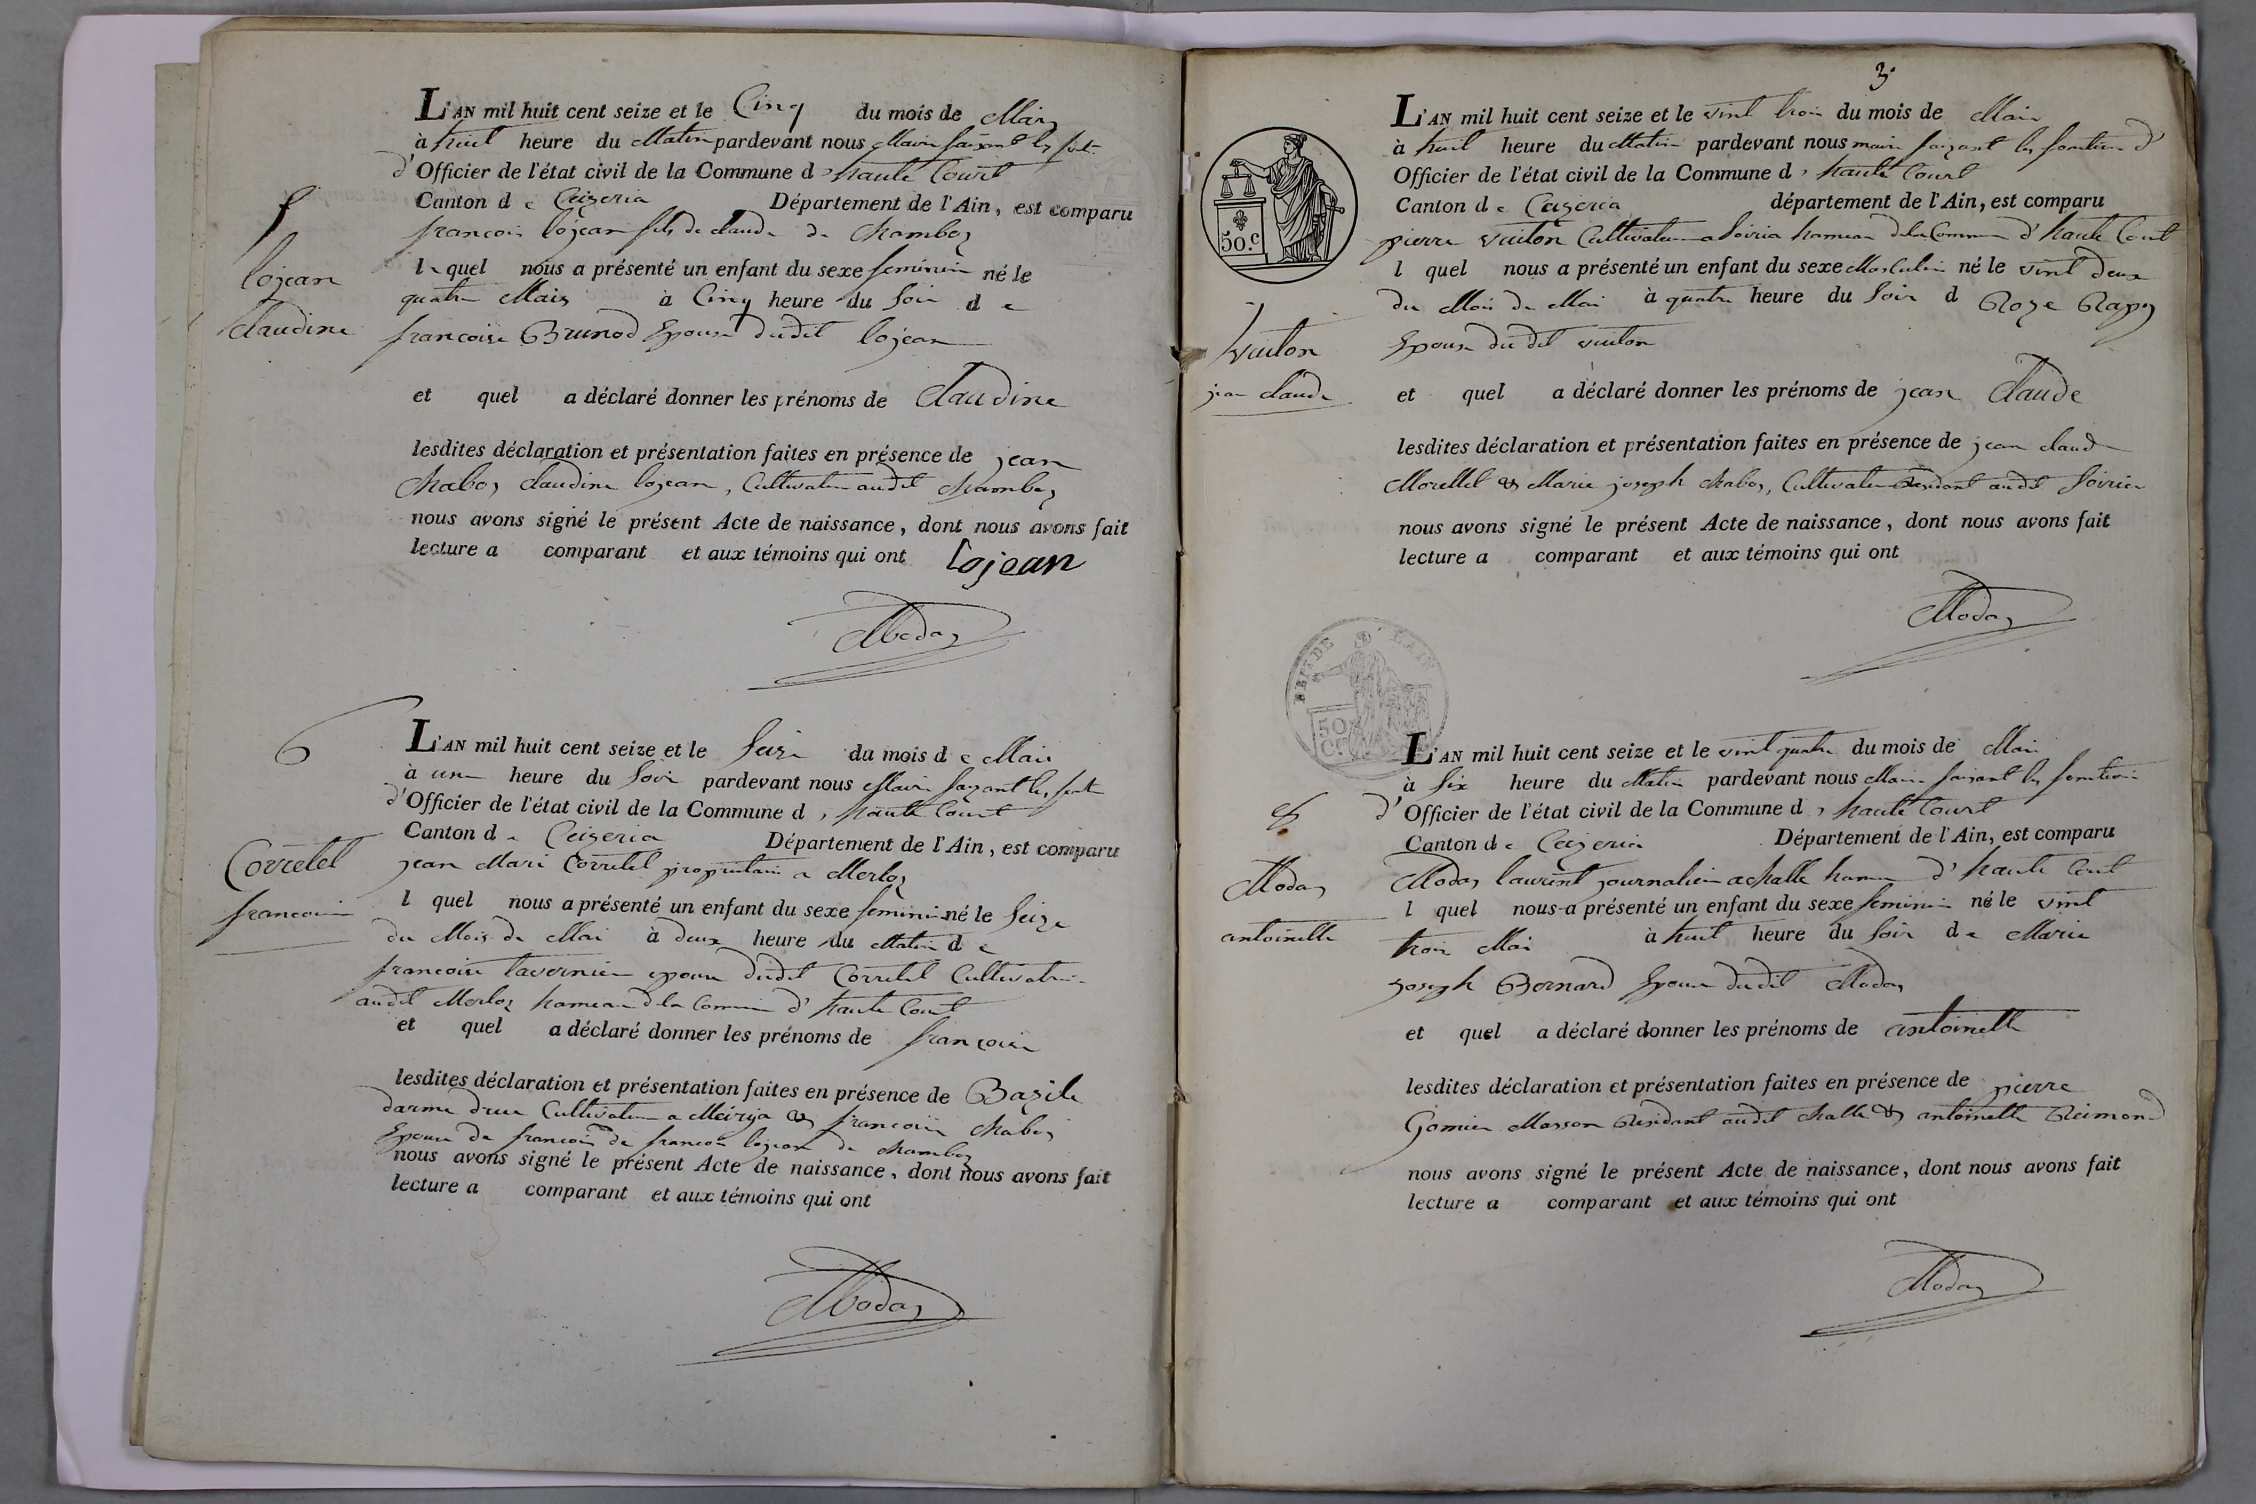 L'AN mil huit cent seize et le Cinq du mois de Mars
à huit heure du Matin pardevant nous Maire faisant les font.
d'Officier de l'état civil de la Commune d, haute Court
Canton de Ceizeria Département de l'Ain, est comparu
françois lojean fils de claude de Chamboz
5
lojean
claudine
le quel nous a présenté un enfant du sexe feminin né le
quatre Mars à Cinq heure du Soir de
francoise Brunod Epouse dudit lojean
et quel a déclaré donner les prénoms de Claudine
lesdites déclaration et présentation faites en présence de jean
Chaboz claudine lojean, Cultivateur audit Chamboz
nous avons signé le présent Acte de naissance, dont nous avons fait
lecture a comparant et aux témoins qui ont Lojean
Modas
6
Corretel
francoise
L'AN mil huit cent seize et le Seize du mois de Mai
à une heure du Soir pardevant nous Maire faisant les font
d'Officier de l'état civil de la Commune d, haute Court
Canton de Ceizeria Département de l'Ain, est comparu
jean Mari Corretel proprietaire a Merloz
l quel nous a présenté un enfant du sexe feminin né le Seize
du Mois de Mai à deux heure du Matin de
francoise tavernier epouse dudit Corretel Cultivatrice
audit Merloz hameau de la Commune d'haute Court
et quel a déclaré donner les prénoms de francoise
lesdites déclaration et présentation faites en présence de Bazile
Cultivateur a & francoise Chaboz
Epouse de francois de francois lojean de Chamboz
nous avons signé le présent Acte de naissance, dont nous avons fait
lecture a comparant et aux témoins qui ont
Modas
3
50.c
L'AN mil huit cent seize et le vint trois du mois de Mai
à huit heure du Matin pardevant nous maire faizant les fonction d'
Officier de l'état civil de la Commune d, haute Court
Canton de Ceizeria département de l'Ain, est comparu
pierre vuiton Cultivateur a Soiria hameau de la Commune d'haute Court
7
vuiton
jean claude
l quel nous a présenté un enfant du sexe Masculin né le vint deux
du Mois de Mai à quatre heure du Soir d Roze Rapy
Epouse du dit vuiton
et quel a déclaré donner les prénoms de jean Claude
lesdites déclaration et présentation faites en présence de jean claude
Morellet & Marie joseph Chaboz, Cultivateur Residant audit Soiria
nous avons signé le présent Acte de naissance, dont nous avons fait
lecture a comparant et aux témoins qui ont
Modas
50 C.
8
Modas
antoinette
L'AN mil huit cent seize et le vint quatre du mois de Mai
à Six heure du Matin pardevant nous Maire faisant les fonction
d'Officier de l'état civil de la Commune d, haute Court
Canton de Ceizeria Département de l'Ain, est comparu
Modas laurent journalier a challe hameau d'haute Court
l quel nous a présenté un enfant du sexe feminin né le vint
trois Mai à huit heure du Soir de Marie
joseph Bernard Epouse dudit Modas
et quel a déclaré donner les prénoms de antoinette
lesdites déclaration et présentation faites en présence de pierre
Gomier Masson Residant audit challe & antoinette Reimond
nous avons signé le présent Acte de naissance, dont nous avons fait
lecture a comparant et aux témoins qui ont
Modas